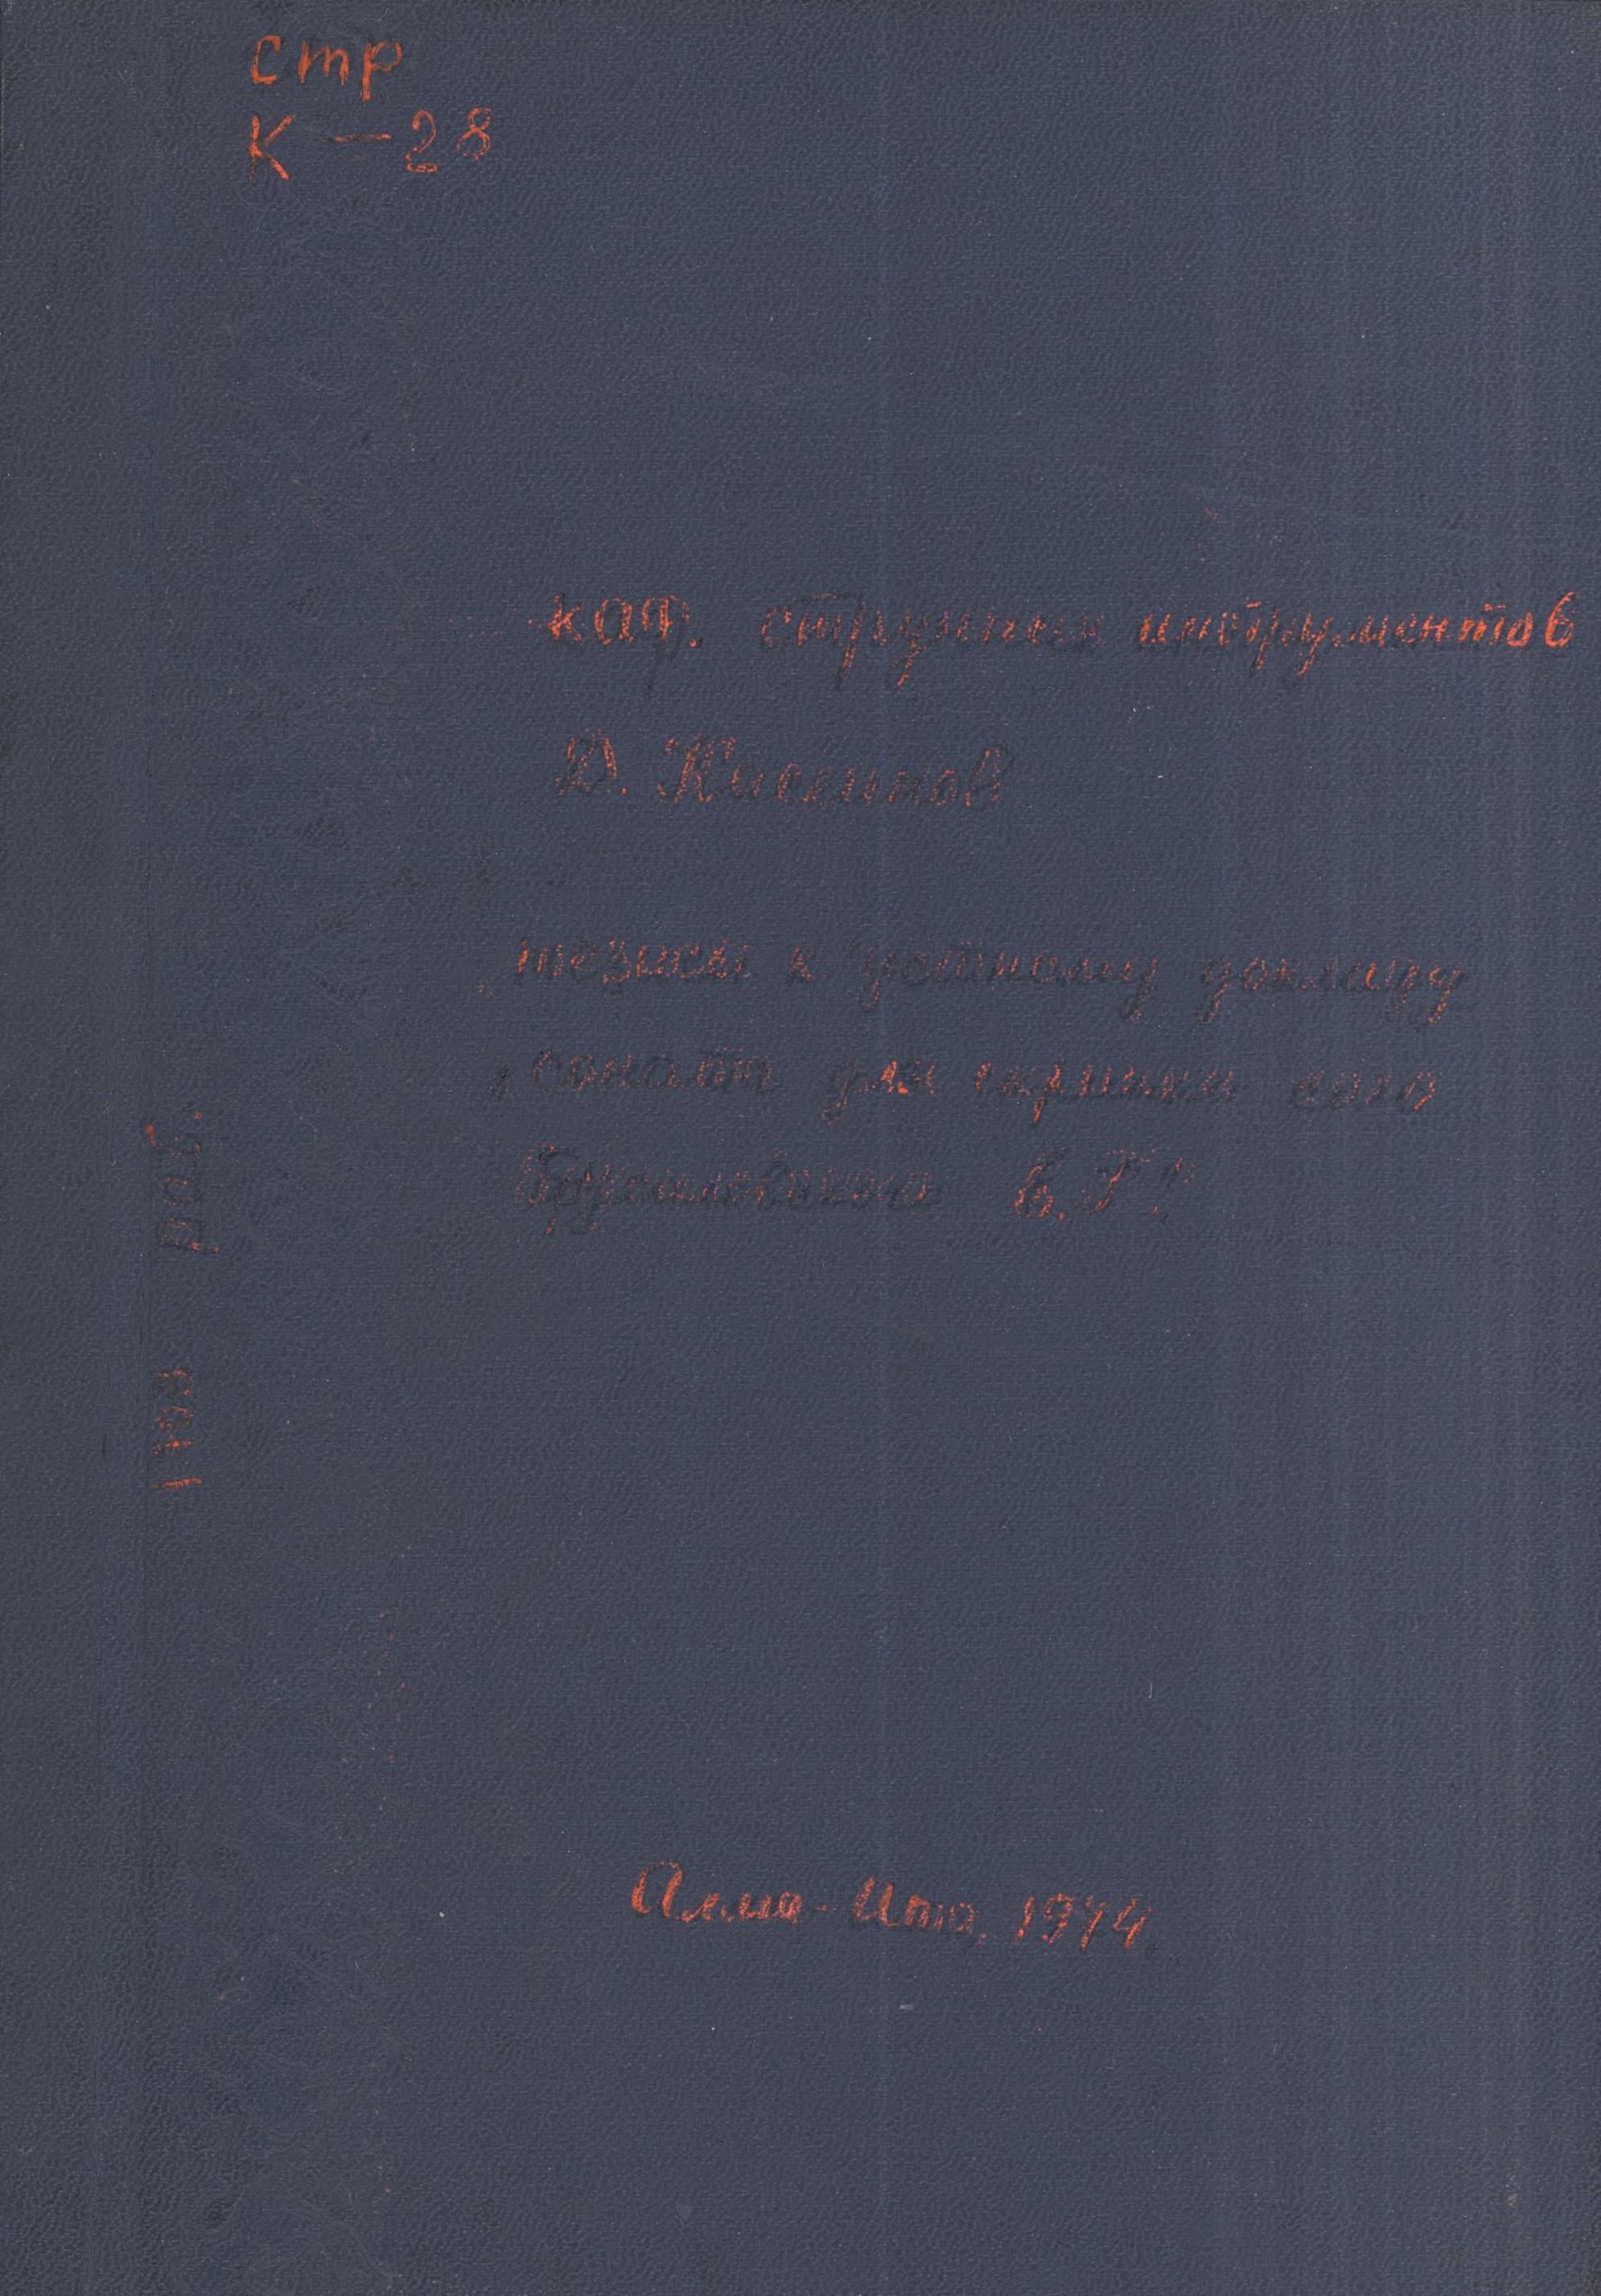 стр
К – 28
каф. струнных инструментов
Д. Касеинов
тезисы к устному докладу
„соната для скрипки соло
Брусиловского Е.Г."
Алма-Ата, 1974
раб.